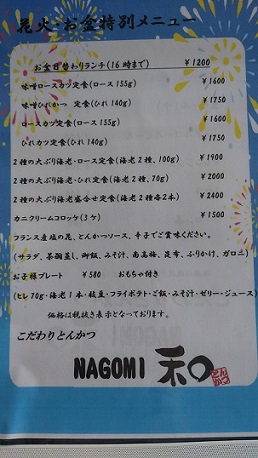 花火・お盆特別メニュー
お盆日替わりランチ(16時まで) ¥1200
味噌ロースカツ定食(ロース155g) ¥1600
味噌ひれかつ 定食(ひれ140g) ¥1750
ロースカツ定食(ロース155g) ¥1600
ひれカツ定食(ひれ140g) ¥1750
2種の大ぶり海老・ロース定食(海老2種、100g) ¥1900
2種の大ぶり海老・ひれ定食(海老2種、70g) ¥2000
2種の大ぶり海老盛合せ定食(海老2種各2本) ¥2400
カニクリームコロッケ(3ケ) ¥1500
フランス産塩の花、とんかつソース、辛子でご賞味ください。
(サラダ、茶碗蒸し、御飯、みそ汁、南高梅、昆布、ふりかけ、ガロニ)
お子様プレート ¥580 おもちゃ付き
(ヒレ70g・海老1本・枝豆・フライポテト・ご飯・みそ汁・ゼリー・ジュース)
価格は税抜き表示となっております。
こだわりとんかつ
NAGOMI 和
とんかつ